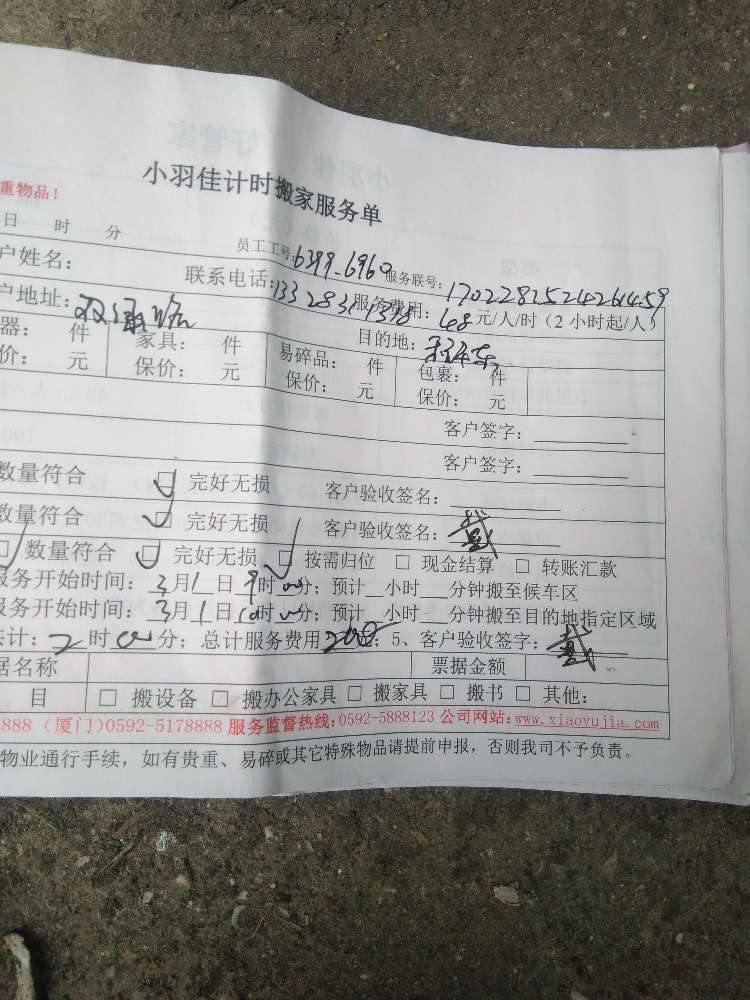 小羽佳计时搬家服务单
重物品！
日 时 分 员工工号:6399-6960 服务联号:1702281524261459
户姓名： 联系电话:133 2831 1398 服务费用：48元/人/时（2小时起/人）
户地址： 目的地：
器： 件 家具： 件 易碎品： 件 包裹： 件
价： 元 保价： 元 保价： 元 保价： 元
客户签字：
客户签字：
数量符合 □ 完好无损 客户验收签名：
数量符合 □ 完好无损 客户验收签名：戴
□ 数量符合 □ 完好无损 □ 按需归位 □ 现金结算 □ 转账汇款
服务开始时间：3月1日9时00分；预计__小时__分钟搬至候车区
服务开始时间：3月1日10时00分；预计__小时__分钟搬至目的地指定区域
共计：2时00分；总计服务费用；5、客户验收签字：戴
据名称 票据金额
目 □ 搬设备 □ 搬办公家具 □ 搬家具 □ 搬书 □ 其他：
888（厦门）0592-5178888 服务监督热线:0592-5888123 公司网站:www.xiaoyujia.com
物业通行手续，如有贵重、易碎或其它特殊物品请提前申报，否则我司不予负责。